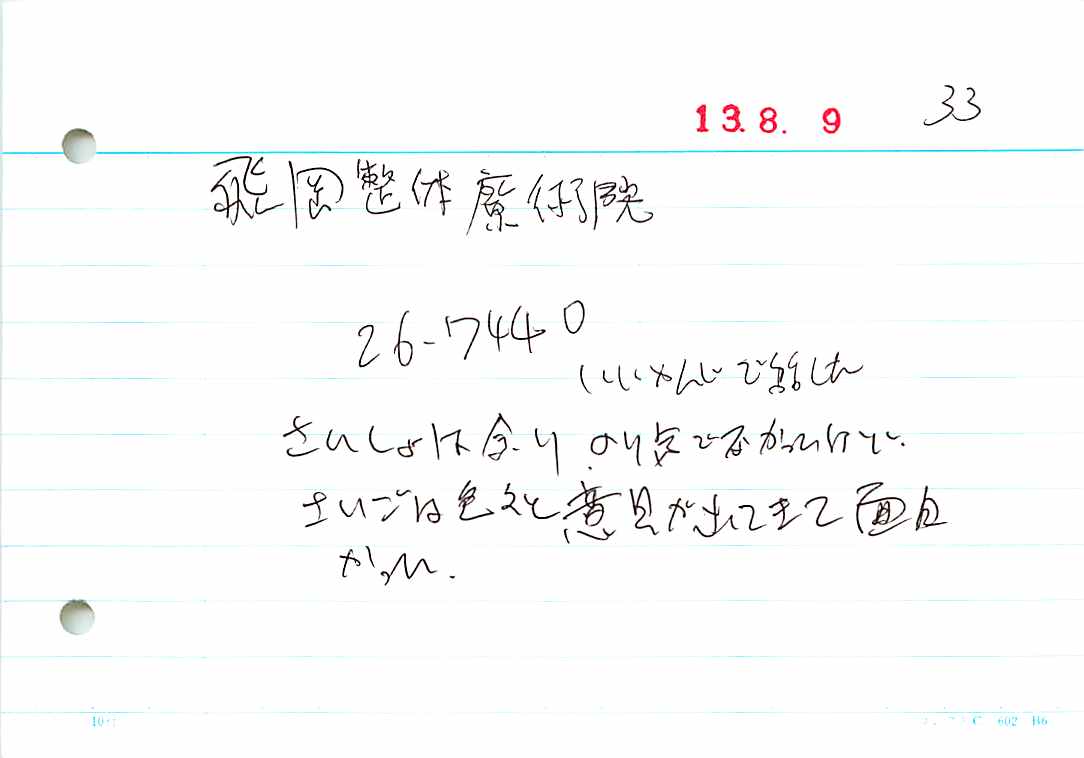 13.8.9 33
飛岡整体療術院
26-7440
いいかんじで話した
さいしょは余り のり気で不かったけど、
さいごは色々と意見が出てきて面白
かった.
602 B6